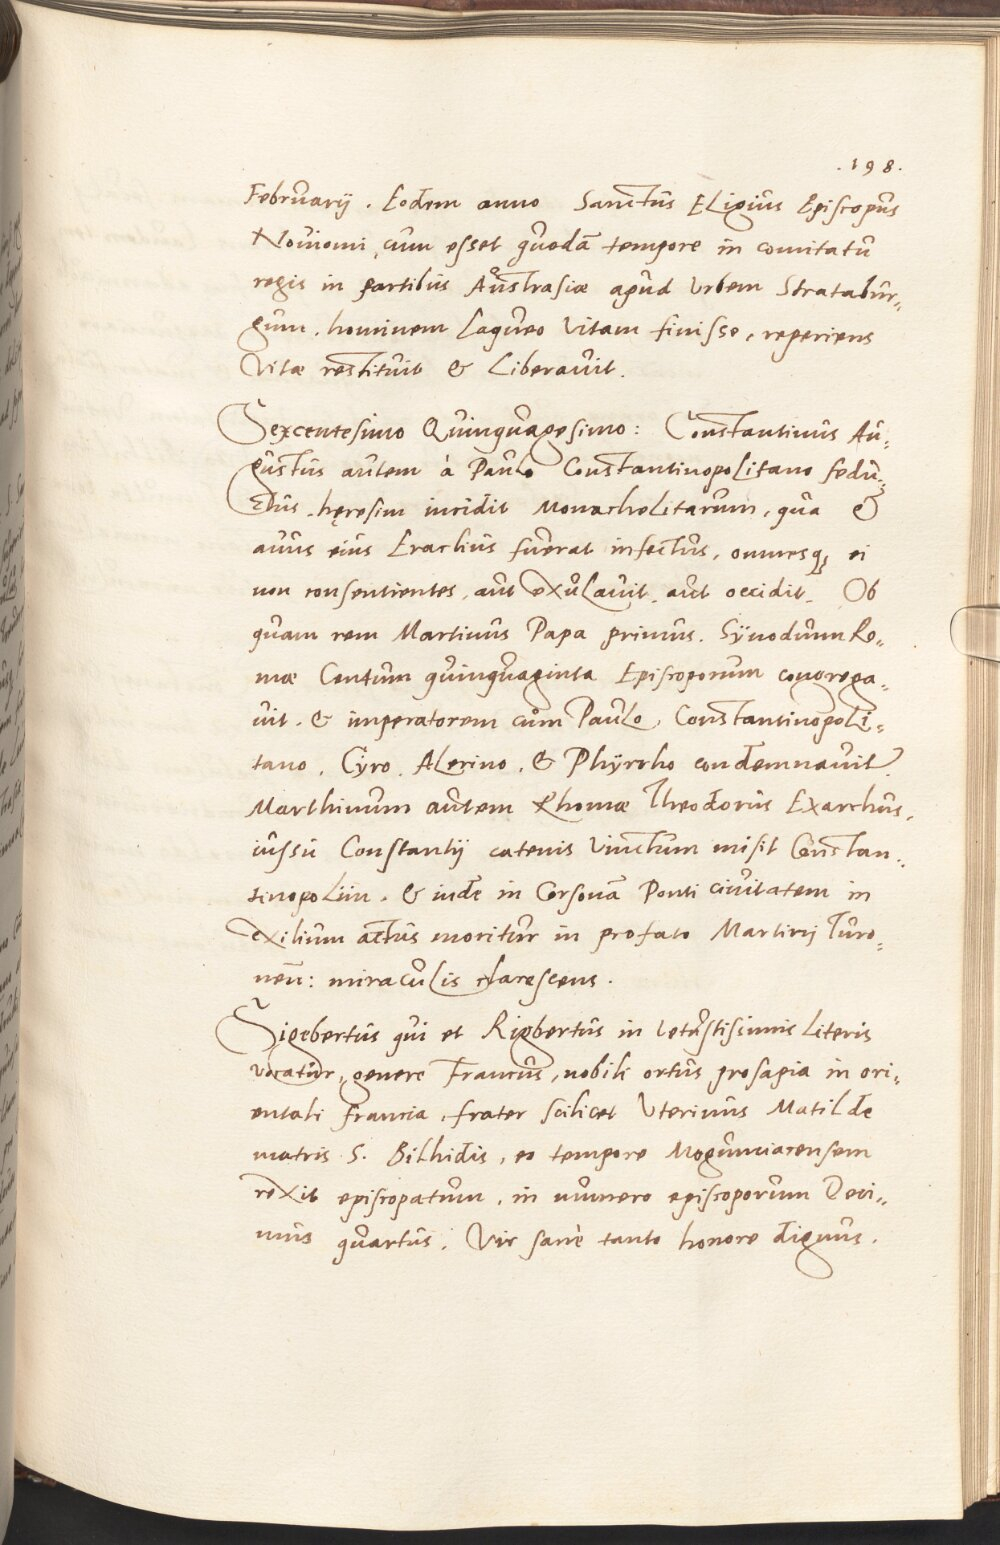 .198.
Februarij. Eodem anno Sanctus Eligius Episcopus
Noviomi, cum esset quodã tempore in comitatu
regis in partibus Austrasiæ apud Urbem Stratabur„
gum, hominem laqueo vitam finisse, reperiens
Vitæ restituit & Liberavit.
Sexcentesimo Quinquagesimo: Constantinus Au„
gustus autem à Paulo Constantinopolitano sedu„
ctus, hęresim incidit Monacholitarum, qua &
avus eius Eraclius fuerat infectus, omnesq₃ ei
non consentientes, aut exulavit, aut occidit. Ob
quam rem Martinus Papa primus. Sÿnodum Ro„
mæ Centum quinquaginta Episcoporum congrega„
vit. & imperatorem cum Paulo, Constantinopoli„
tano, Cÿro, Alerino, & Phÿrrho condemnavit.
Marthinum autem Rhomæ Theodorus Exarchus,
iussu Constantij catenis vinctum misit Constan„
tinopolim. & inde in Corsonã Ponti civitatem in
exilium actus moritur in profato Martirij Turo„
neñ: miraculis clarescens.
Sigebertus qui et Rigbertus in vetustissimis literis
vocatur, genere Francus, nobili ortus prosapia in ori„
entali francia, frater scilicet Uterinus Matilde
matris S. Bilhidis, eo tempore Moguntiacensem
rexit episcopatum, in numero episcoporum Deci„
mus quartus. Vir sanè tanto honore dignus.